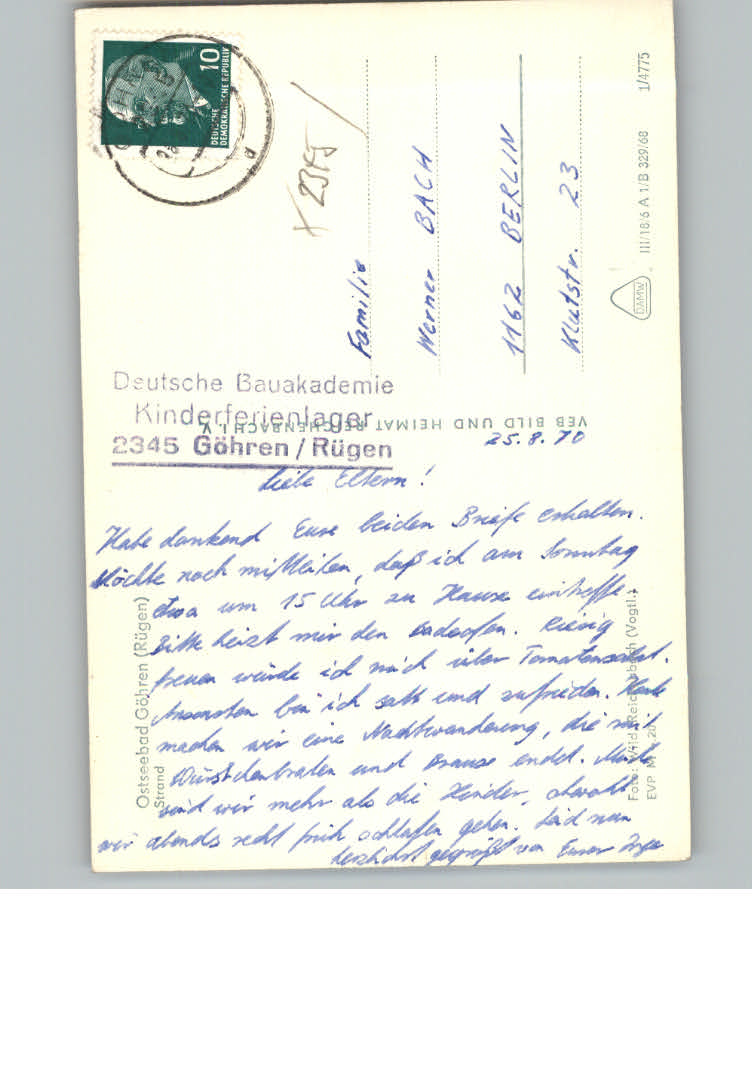 10
DEUTSCHE
DEMOKRATISCHE REPUBLIK
Familie
Werner BACH
1162 BERLIN
Klutstr. 23
III/18/6 A 1/B 329/68 1/4775
DAMW
Deutsche Bauakademie
Kinderferienlager
2345 Göhren / Rügen
VEB BILD UND HEIMAT REICHENBACH I. V.
25.8.70
Liebe Eltern!
Habe dankend Eure beiden Briefe erhalten.
Möchte noch mitteilen, daß ich am Sonntag
etwa um 15 Uhr zu Hause eintreffe.
Bitte heizt mir den Badeofen. Riesig
freuen würde ich mich über Tomatensalat.
Ansonsten bin ich satt und zufrieden. Heute
machen wir eine Nachtwanderung, die mit
Würstchenbraten und Brause endet. Müde
sind wir mehr als die Kinder, obwohl
wir abends recht früh schlafen gehen. Seid nun
herzlichst gegrüßt von Eurer
Ostseebad Göhren (Rügen)
Strand
Foto: Reichenbach (Vogtl.)
EVP M